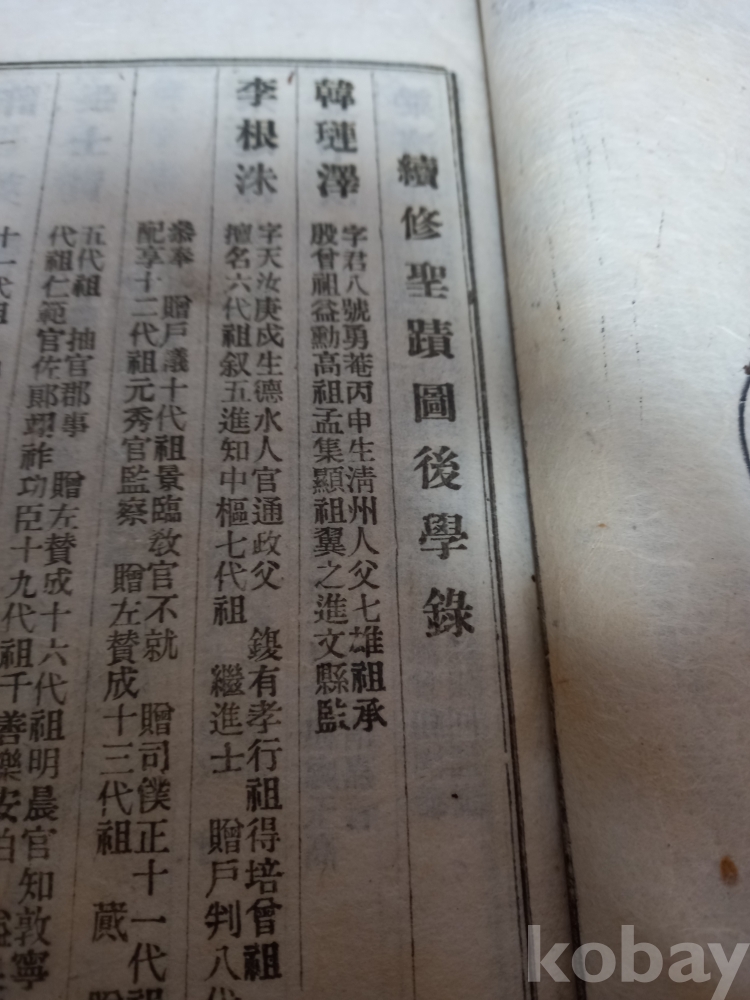 續修聖蹟圖後學錄
韓璉澤
字君八號勇菴丙申生淸州人父七雄祖承
殷曾祖益勳高祖孟集顯祖翼之進文縣監
李根洙
字天汝庚戍生德水人官通政父 鍑有孝行祖得培曾祖
擅名六代祖叙五進知中樞七代祖 繼進士 贈戶判八代
叅奉 贈戶議十代祖景臨敎官不就 贈司僕正十一代祖
配享十二代祖元秀官監察 贈左贊成十三代祖 蕆
五代祖 抽官郡事 贈左贊成十六代祖明晨官知敦寧
代祖仁範官佐郞翊祚功臣十九代祖千善樂安伯
十一代祖
kobay